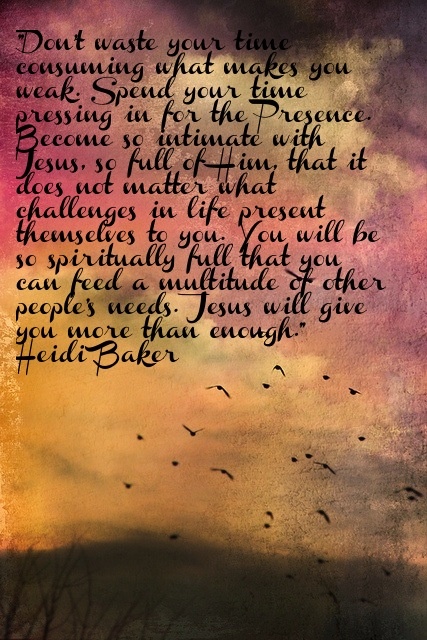 "Don't waste your time
consuming what makes you
weak. Spend your time
pressing in for the Presence.
Become so intimate with
Jesus, so full of Him, that it
does not matter what
challenges in life present
themselves to you. You will be
so spiritually full that you
can feed a multitude of other
people's needs. Jesus will give
you more than enough."
Heidi Baker